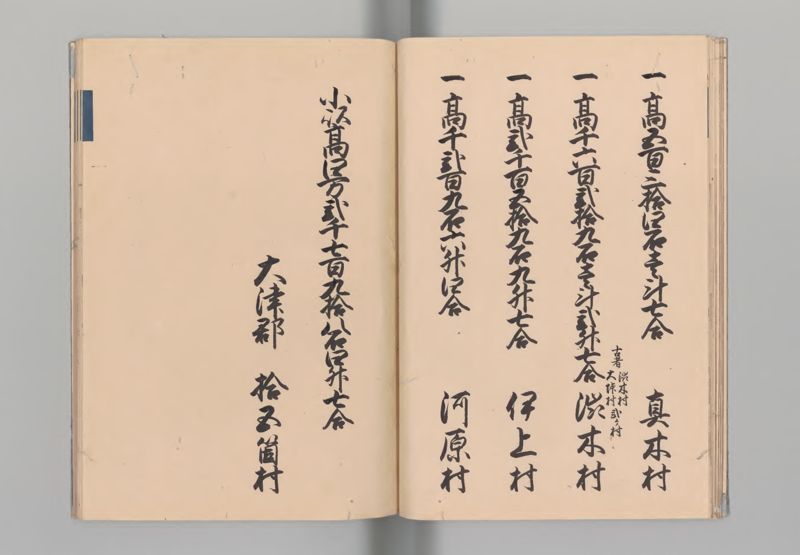 一高五百三拾四石壱斗七合 真木村
一高千六百弐拾九石壱斗弐升七合 渋木村
古者 渋木村
大垰村 弐ヶ村
一高弐千百五拾九石九升七合 伊上村
一高千弐百九石六升四合 河原村
小以高四万弐千七百九拾八石四升七合
大津郡 拾五箇村